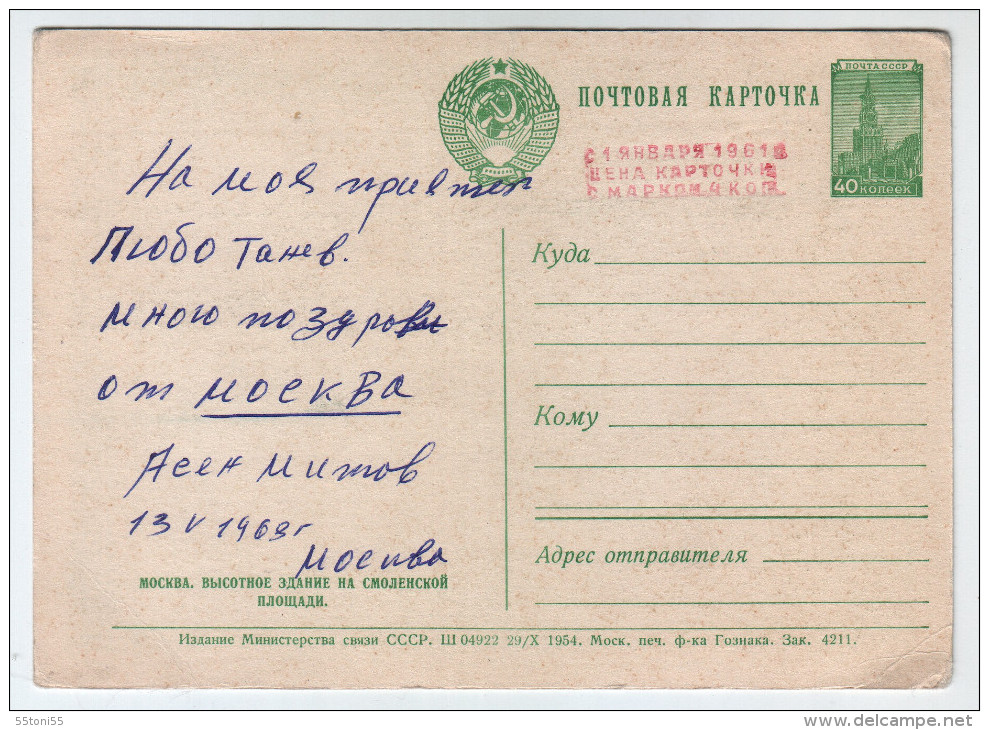 ПОЧТА СССР
ПОЧТОВАЯ КАРТОЧКА
С 1 ЯНВАРЯ 1961 г.
ЦЕНА КАРТОЧКИ
С МАРКОЙ 4 КОП.
40 КОПЕЕК
На моя приятел
Любо Танев.
много поздрови
от Москва
Асен Митов
13 V 1963 г
Москва
МОСКВА. ВЫСОТНОЕ ЗДАНИЕ НА СМОЛЕНСКОЙ
ПЛОЩАДИ.
Куда
Кому
Адрес отправителя
Издание Министерства связи СССР. Ш 04922 29/X 1954. Моск. печ. ф-ка Гознака. Зак. 4211.
55toni55
delcampe.net